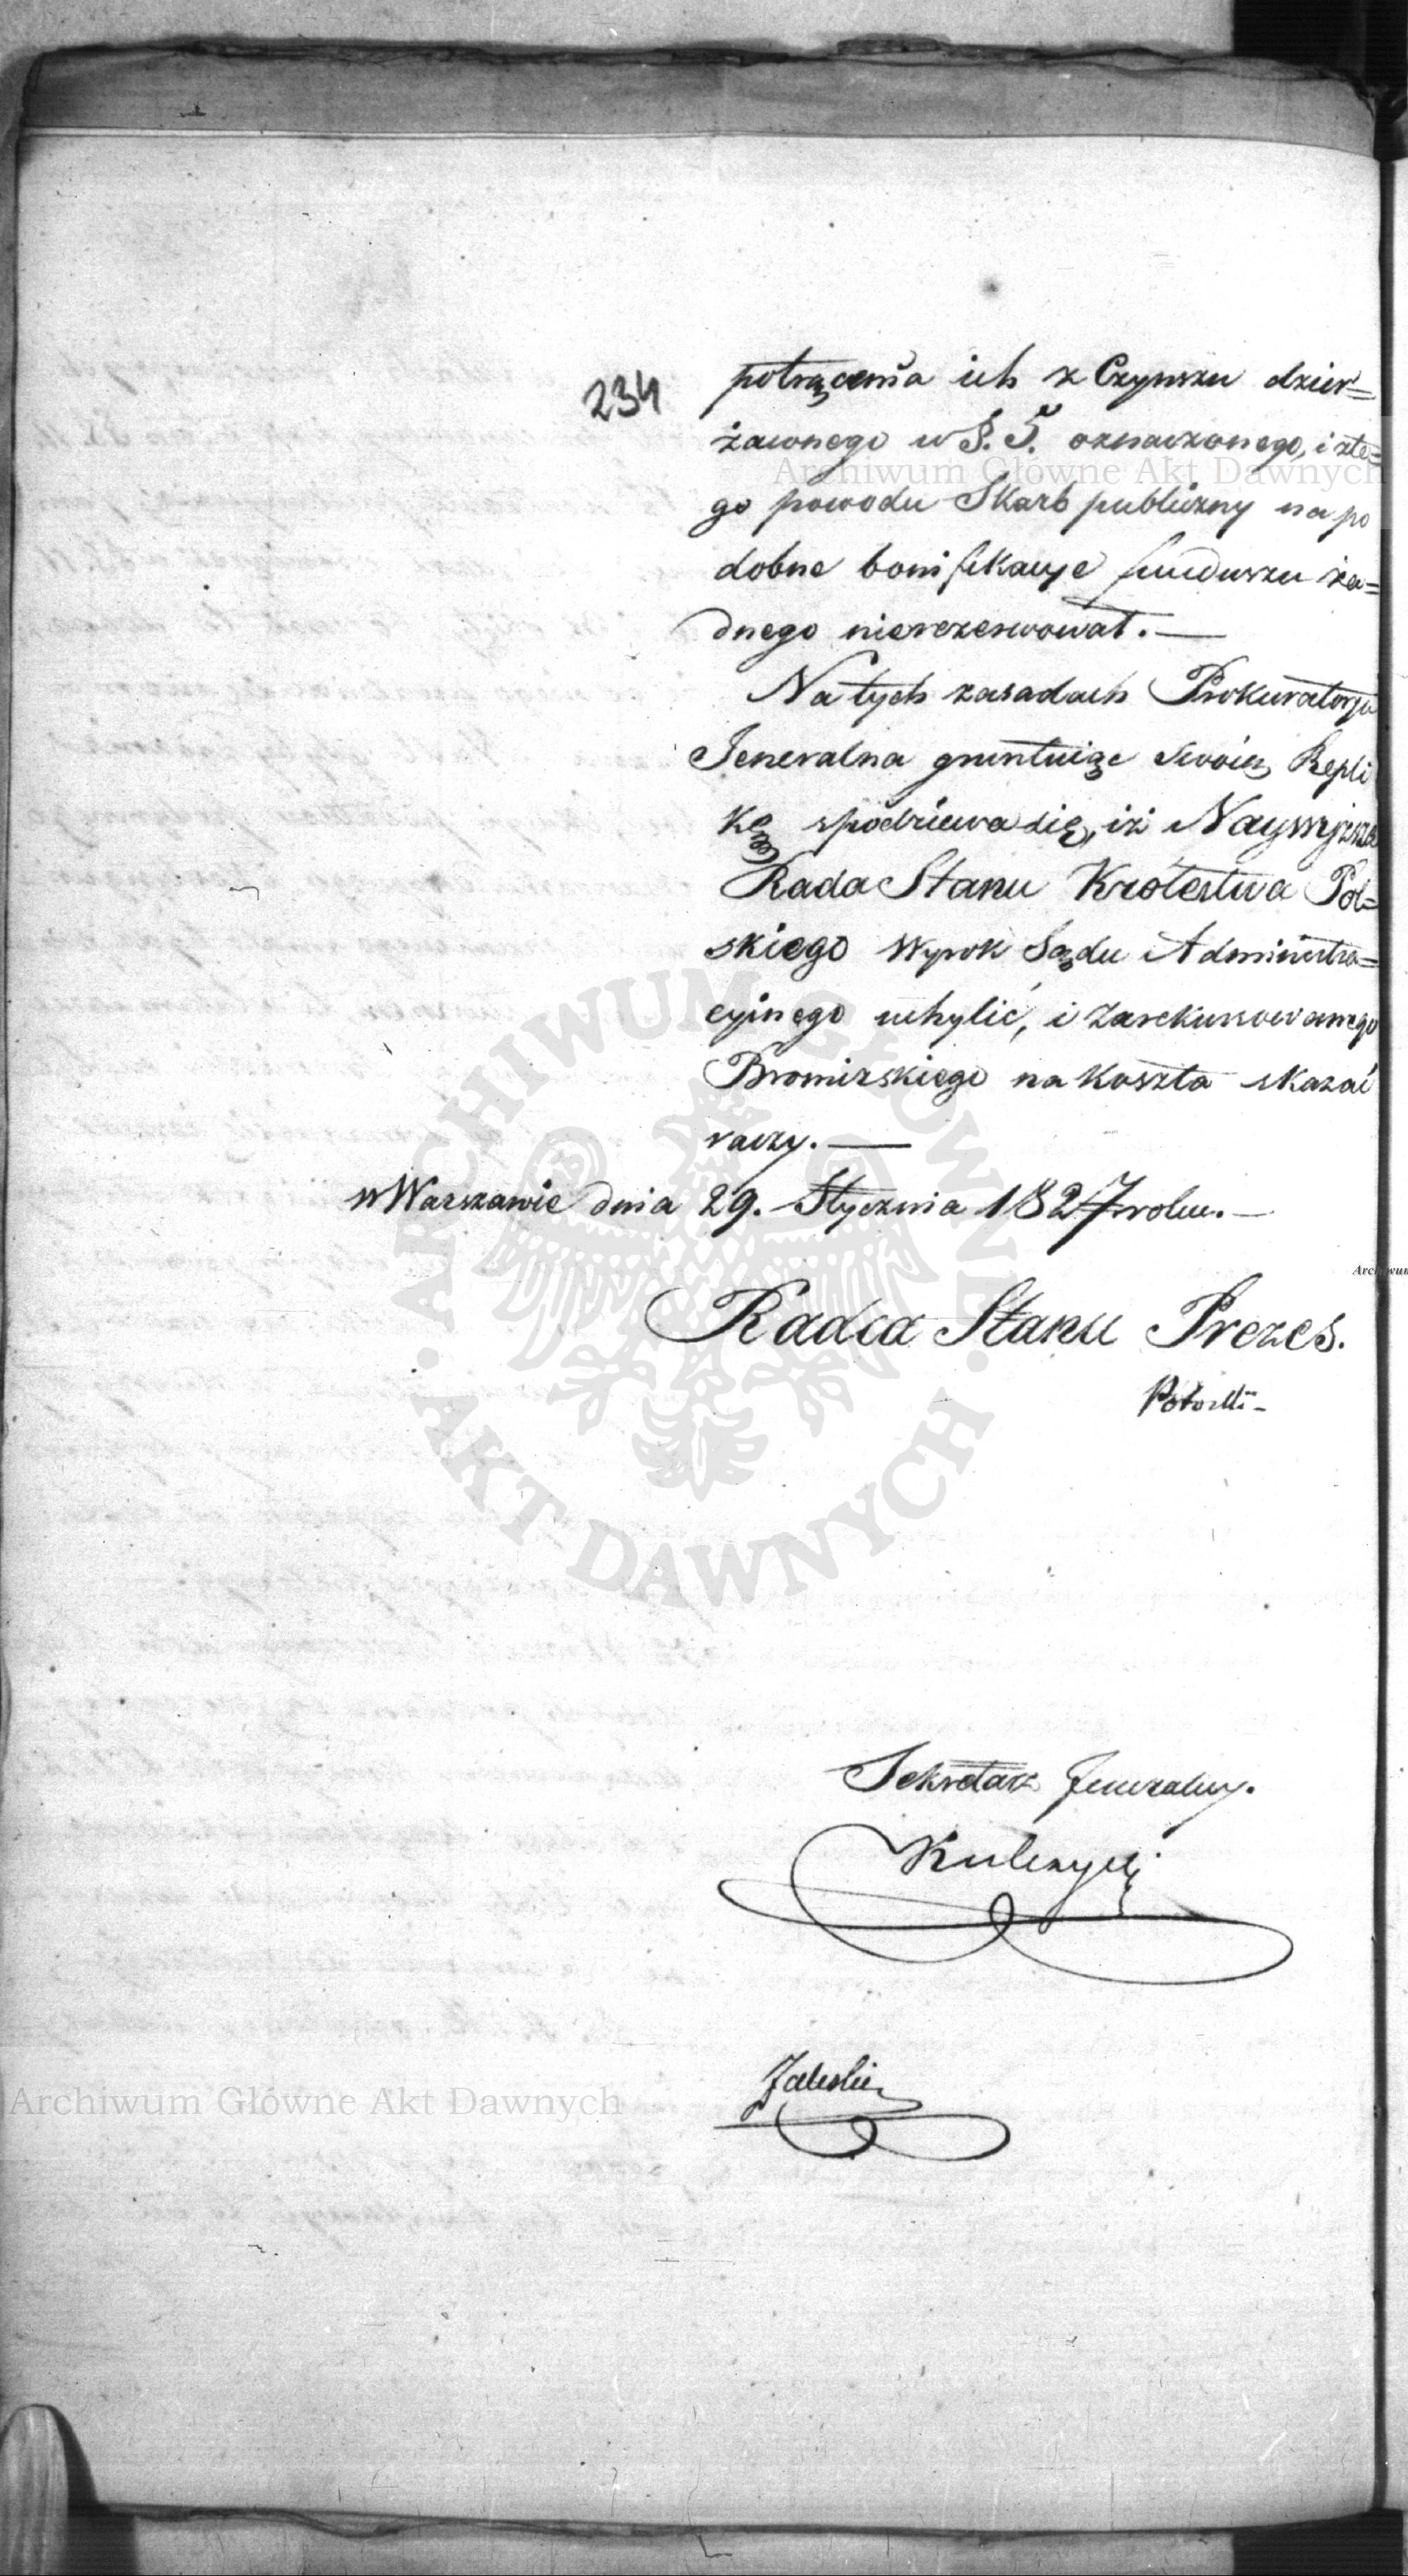 234
potrącenia ich z Czynszu dzier=
żawnego w §. 5. oznaczonego, i zte=
go powodu Skarb publiczny na po
dobne bonifikacye funduszu ża=
dnego nierezerwował. —
Na tych zasadach Prokuratorya
Jeneralna gruntuiąc swoię Repli
kę spodziewa się, iż Naywyższa
Rada Stanu Królestwa Pol=
skiego Wyrok Sądu Administra=
cyinego uchylić, i Zarekursowanego
Bromirskiego na koszta skazać
raczy. —
w Warszawie dnia 29. Stycznia 1827 roku. —
Radca Stanu Prezes.
Potocki -
Sekretarz Jeneralny.
Kulczycki
Zaleski
Archiwum Główne Akt Dawnych
ARCHIWUM GŁÓWNE · AKT DAWNYCH ·
Archiwum Główne Akt Dawnych
Archiwum